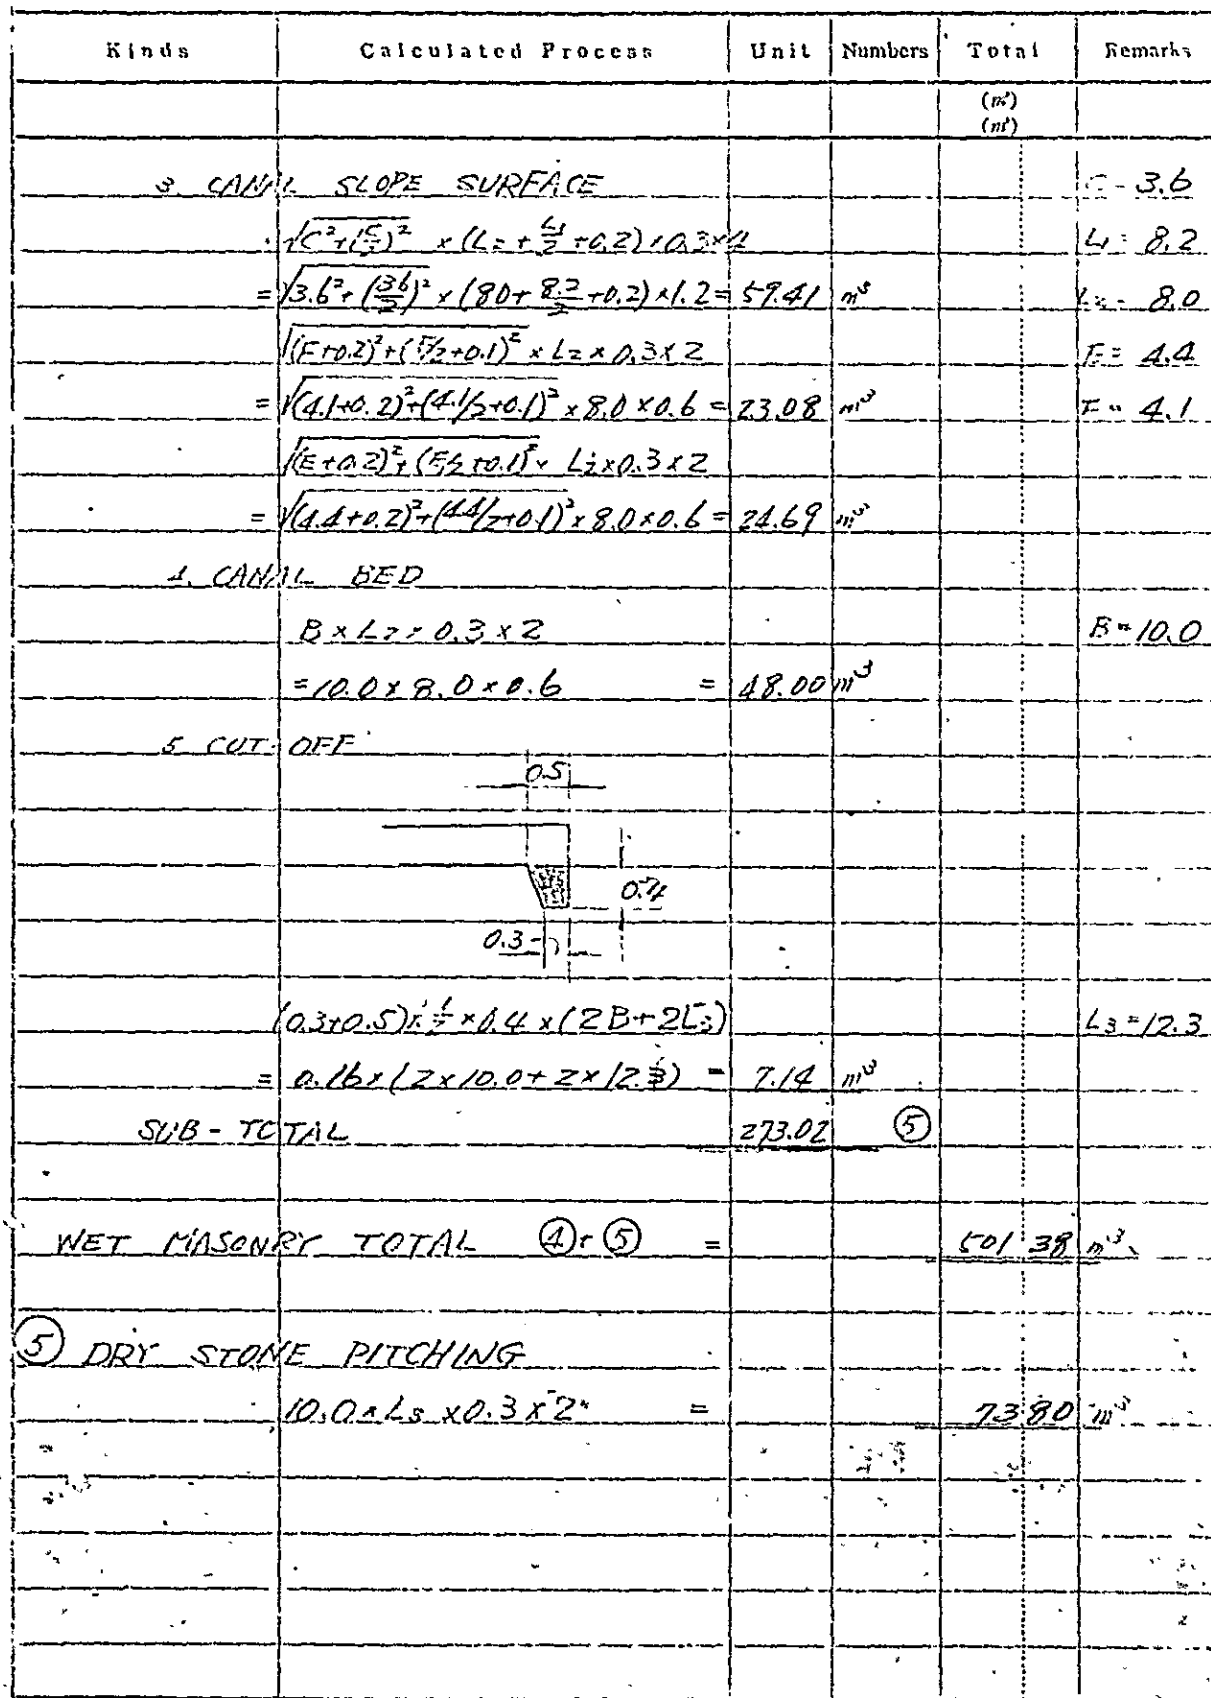 Kinds Calculated Process Unit Numbers Total Remarks
(m³)
(m³)
3. CANAL SLOPE SURFACE C = 3.6
√(C²+(C/2)²) × (L2 + L1/2 + 0.2) × 0.3 × 4 L1 = 8.2
= √(3.6²+(3.6/2)²) × (8.0 + 8.2/2 + 0.2) × 1.2 = 59.41 m³ L2 = 8.0
√((F+0.2)²+(F/2+0.1)²) × L2 × 0.3 × 2 E = 4.4
= √((4.1+0.2)²+(4.1/2+0.1)²) × 8.0 × 0.6 = 23.08 m³ F = 4.1
√((E+0.2)²+(E/2+0.1)²) × L2 × 0.3 × 2
= √((4.4+0.2)²+(4.4/2+0.1)²) × 8.0 × 0.6 = 24.69 m³
4. CANAL BED
B × L2 × 0.3 × 2 B = 10.0
= 10.0 × 8.0 × 0.6 = 48.00 m³
5 CUT-OFF
0.5
0.4
0.3
(0.3+0.5) × 1/2 × 0.4 × (2B+2L3) L3 = 12.3
= 0.16 × (2×10.0 + 2×12.3) = 7.14 m³
SUB-TOTAL 273.02 ⑤
WET MASONRY TOTAL ④+⑤ = 501.38 m³
⑤ DRY STONE PITCHING
10.0 × L3 × 0.3 × 2 = 73.80 m³